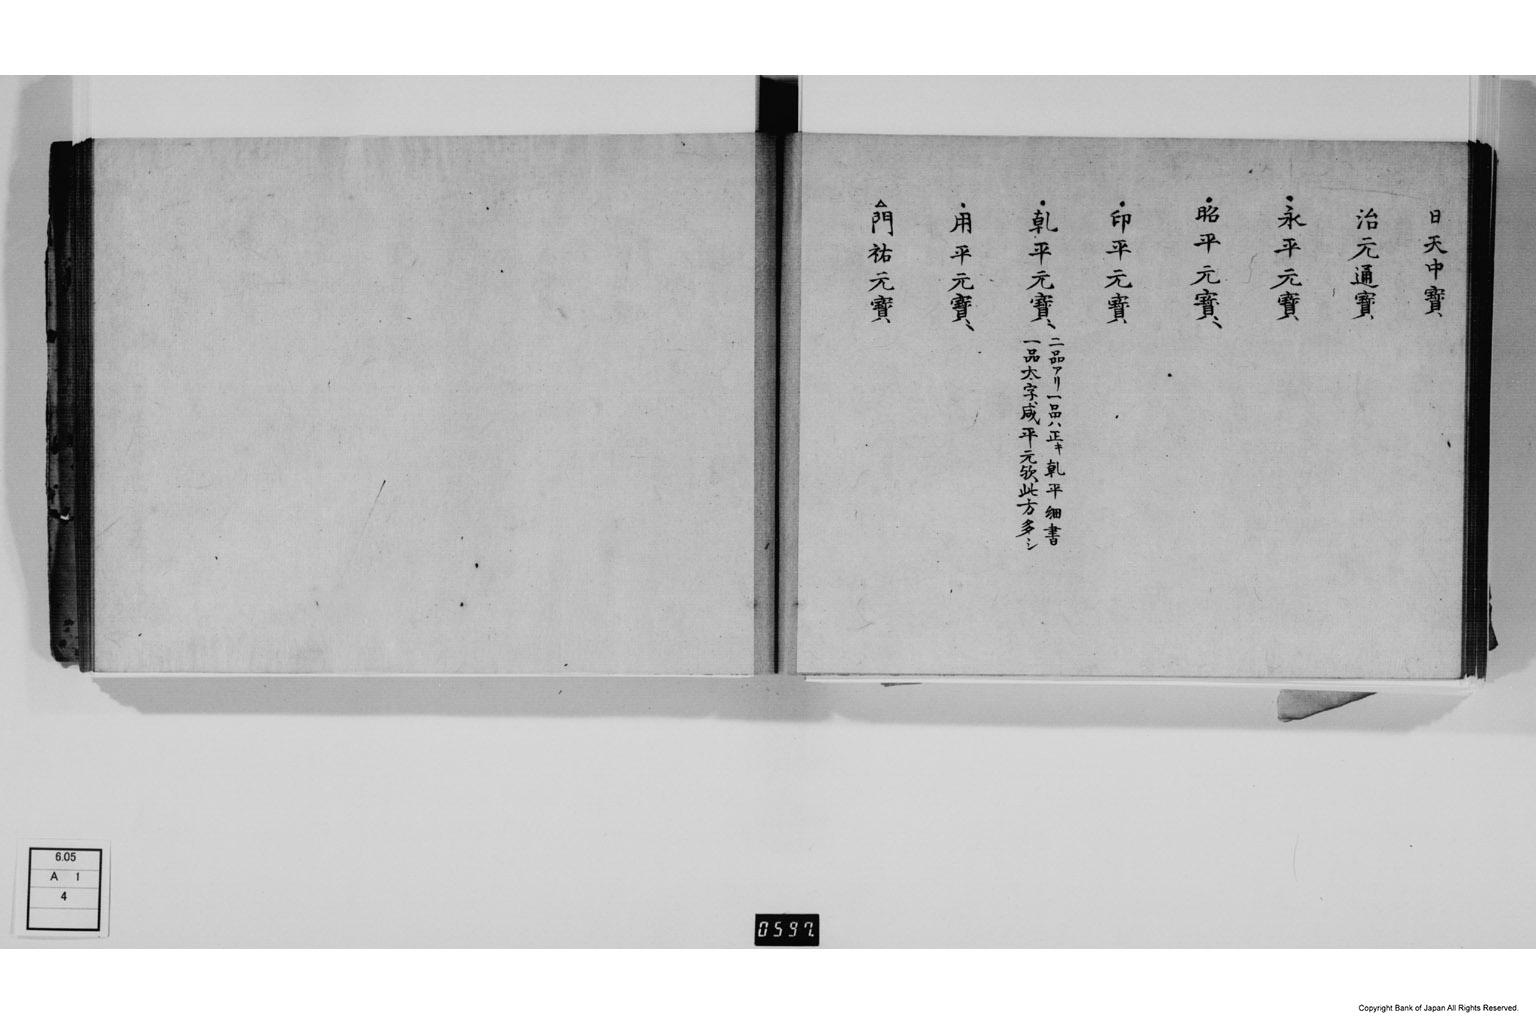 日天中寳
治元通寳
永平元寳
昭平元寳
印平元寳
乹平元寳
二品アリ一品ハ正キ乹平細書
一品太字咸平元欤此方多シ
用平元寳
門祐元寳
6.05
A 1
4
0597
Copyright Bank of Japan All Rights Reserved.